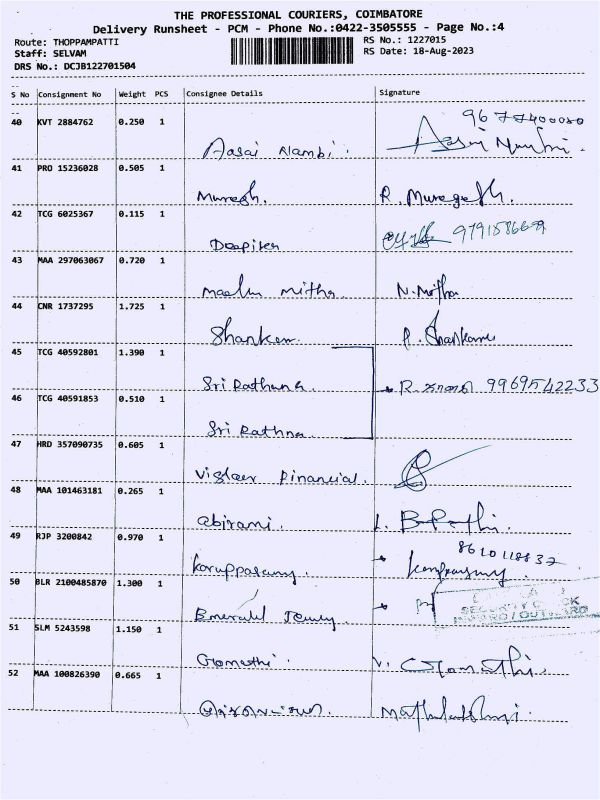 THE PROFESSIONAL COURIERS, COIMBATORE
Delivery Runsheet - PCM - Phone No.:0422-3505555 - Page No.:4
Route: THOPPAMPATTI RS No.: 1227015
Staff: SELVAM RS Date: 18-Aug-2023
DRS No.: DCJB122701504
S No Consignment No Weight PCS Consignee Details Signature
40 KVT 2884762 0.250 1
Aasai Nambi.
41 PRO 15236028 0.505 1
R. Murugesh.
42 TCG 6025367 0.115 1
Deepika
43 MAA 297063067 0.720 1
Mitha N. Mitha
44 CNR 1737295 1.725 1
Shankar
45 TCG 40592801 1.390 1
Sri Rathna R. 9969542233
46 TCG 40591853 0.510 1
Sri Rathna
47 HRD 357090735 0.605 1
Vistaar Financial.
48 MAA 101463181 0.265 1
abirami.
49 RJP 3200842 0.970 1
8610118832
Karuppasamy
50 BLR 2100485870 1.300 1
Emerald SECURITY CHECK
INWARD/OUTWARD
51 SLM 5243598 1.150 1
Gomathi. V. Gomathi.
52 MAA 100826390 0.665 1